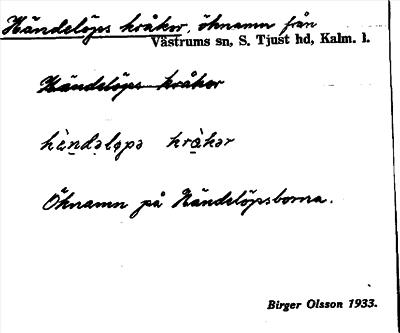 Händelöps kråkor, öknamn från
Västrums sn, S. Tjust hd, Kalm. l.
Händelöps kråkor
hä̀ndəløpə krà̊kər
Öknamn på Händelöpsborna.
Birger Olsson 1933.